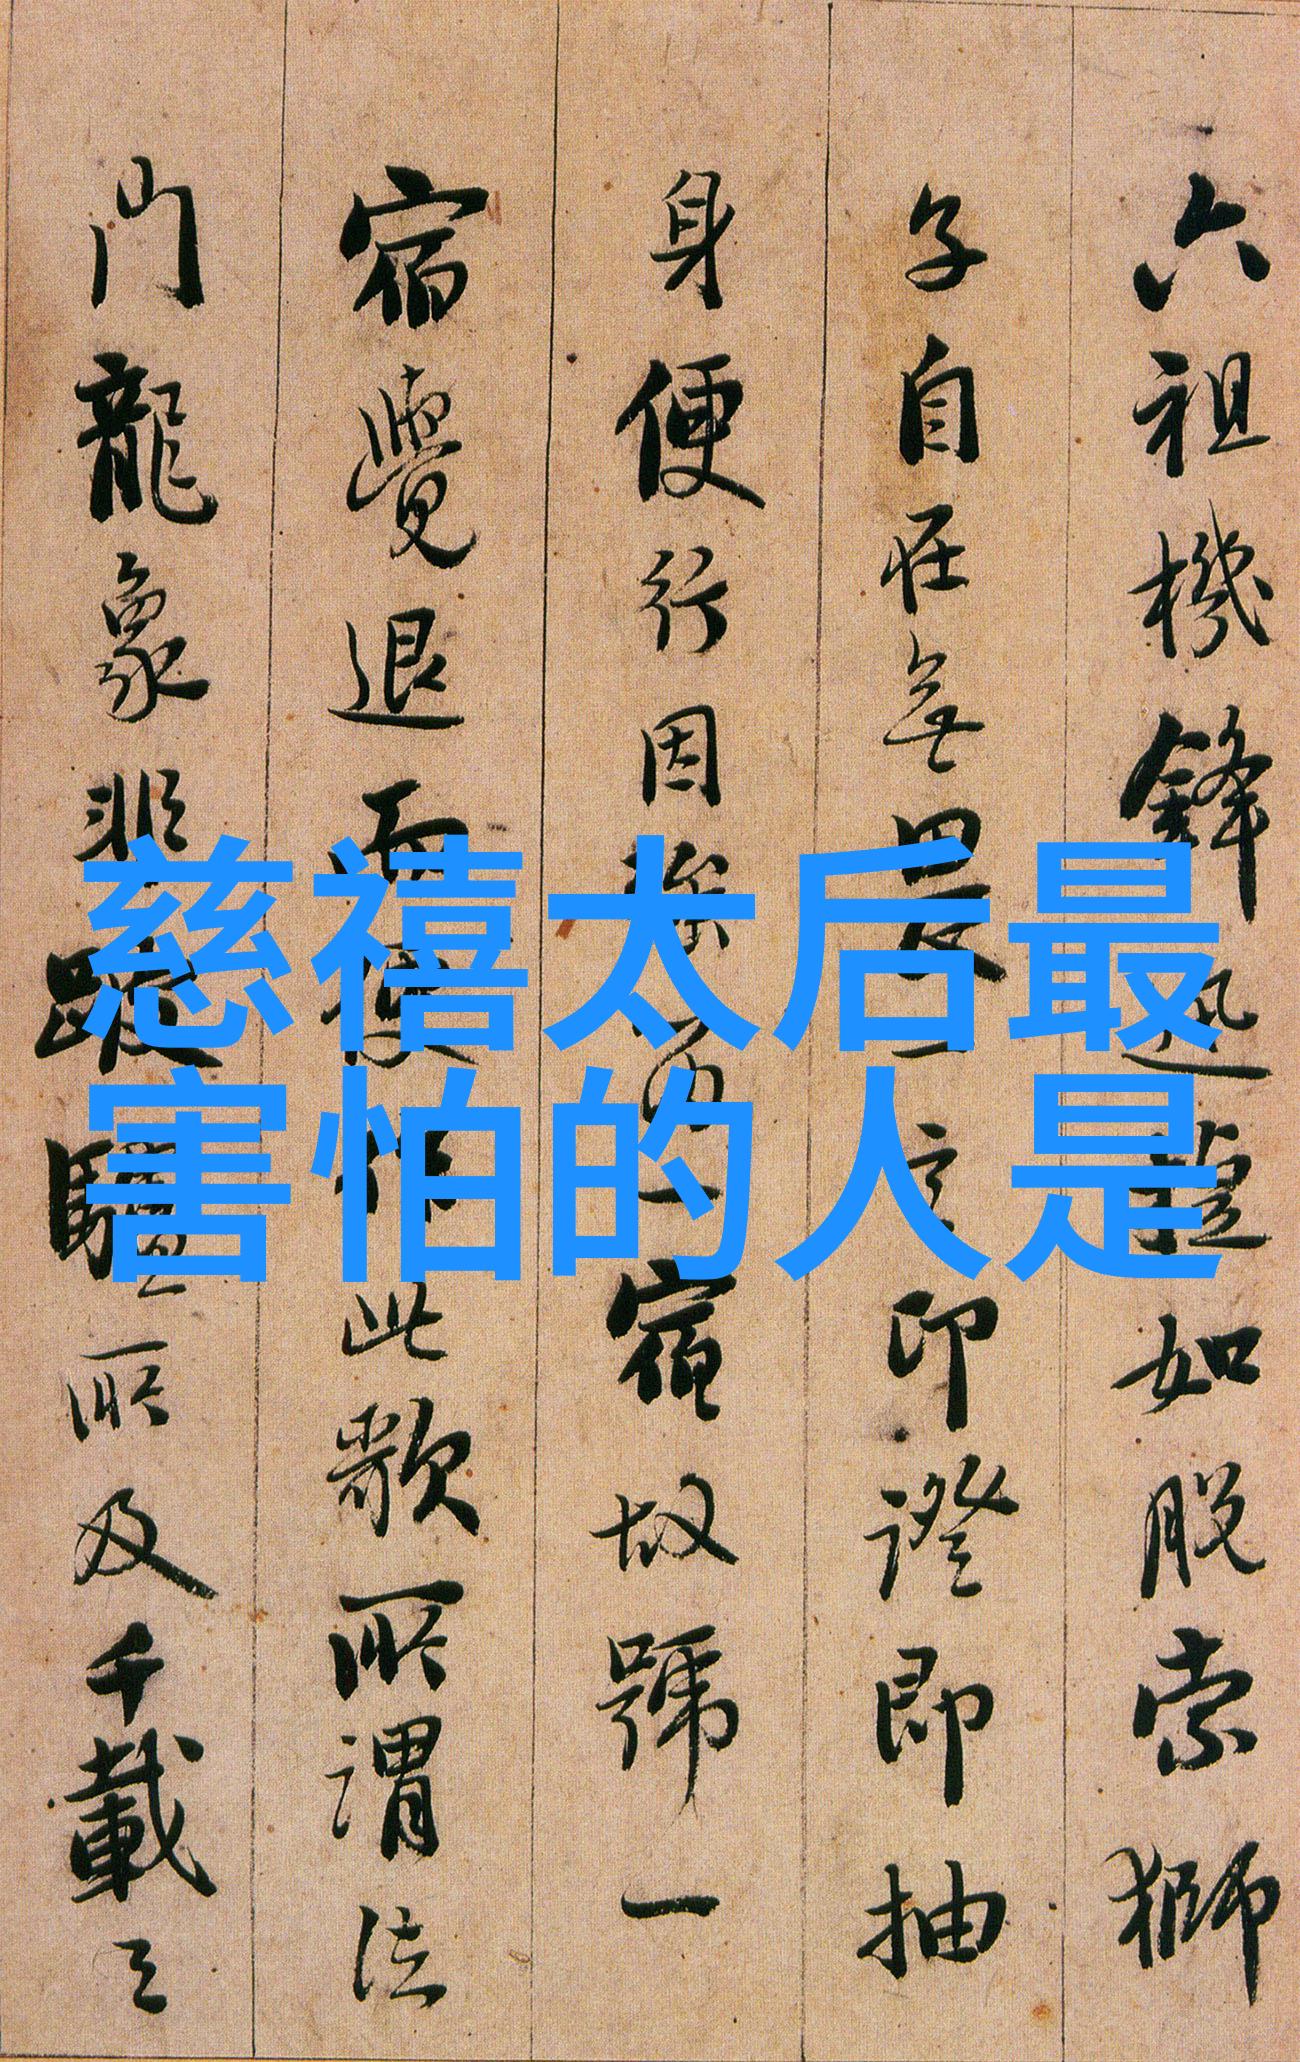 慈禧太后最
害怕的人是
六祖機鋒迅捷如脱索獅
子自在無言印證即抽
身便行因一宿故號一
宿覺退而作此歌所謂法
門龍象非蹴驢所及千載之